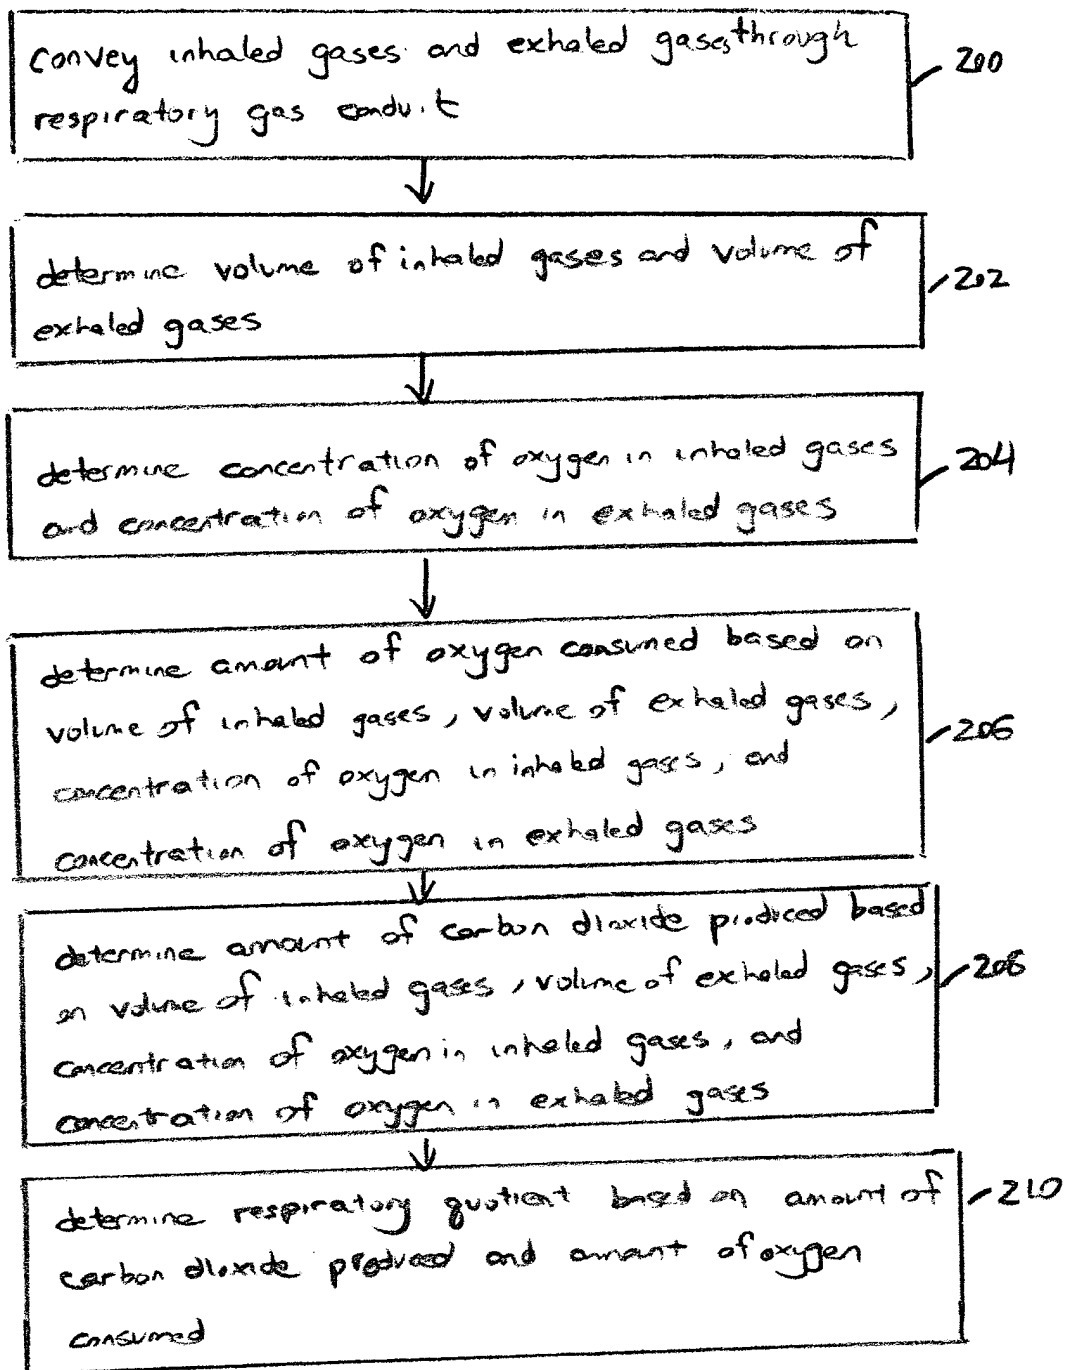 convey inhaled gases and exhaled gases through
respiratory gas conduit
200
determine volume of inhaled gases and volume of
exhaled gases
202
determine concentration of oxygen in inhaled gases
and concentration of oxygen in exhaled gases
204
determine amount of oxygen consumed based on
volume of inhaled gases, volume of exhaled gases,
concentration of oxygen in inhaled gases, and
concentration of oxygen in exhaled gases
206
determine amount of carbon dioxide produced based
on volume of inhaled gases, volume of exhaled gases,
concentration of oxygen in inhaled gases, and
concentration of oxygen in exhaled gases
208
determine respiratory quotient based on amount of
carbon dioxide produced and amount of oxygen
consumed
210